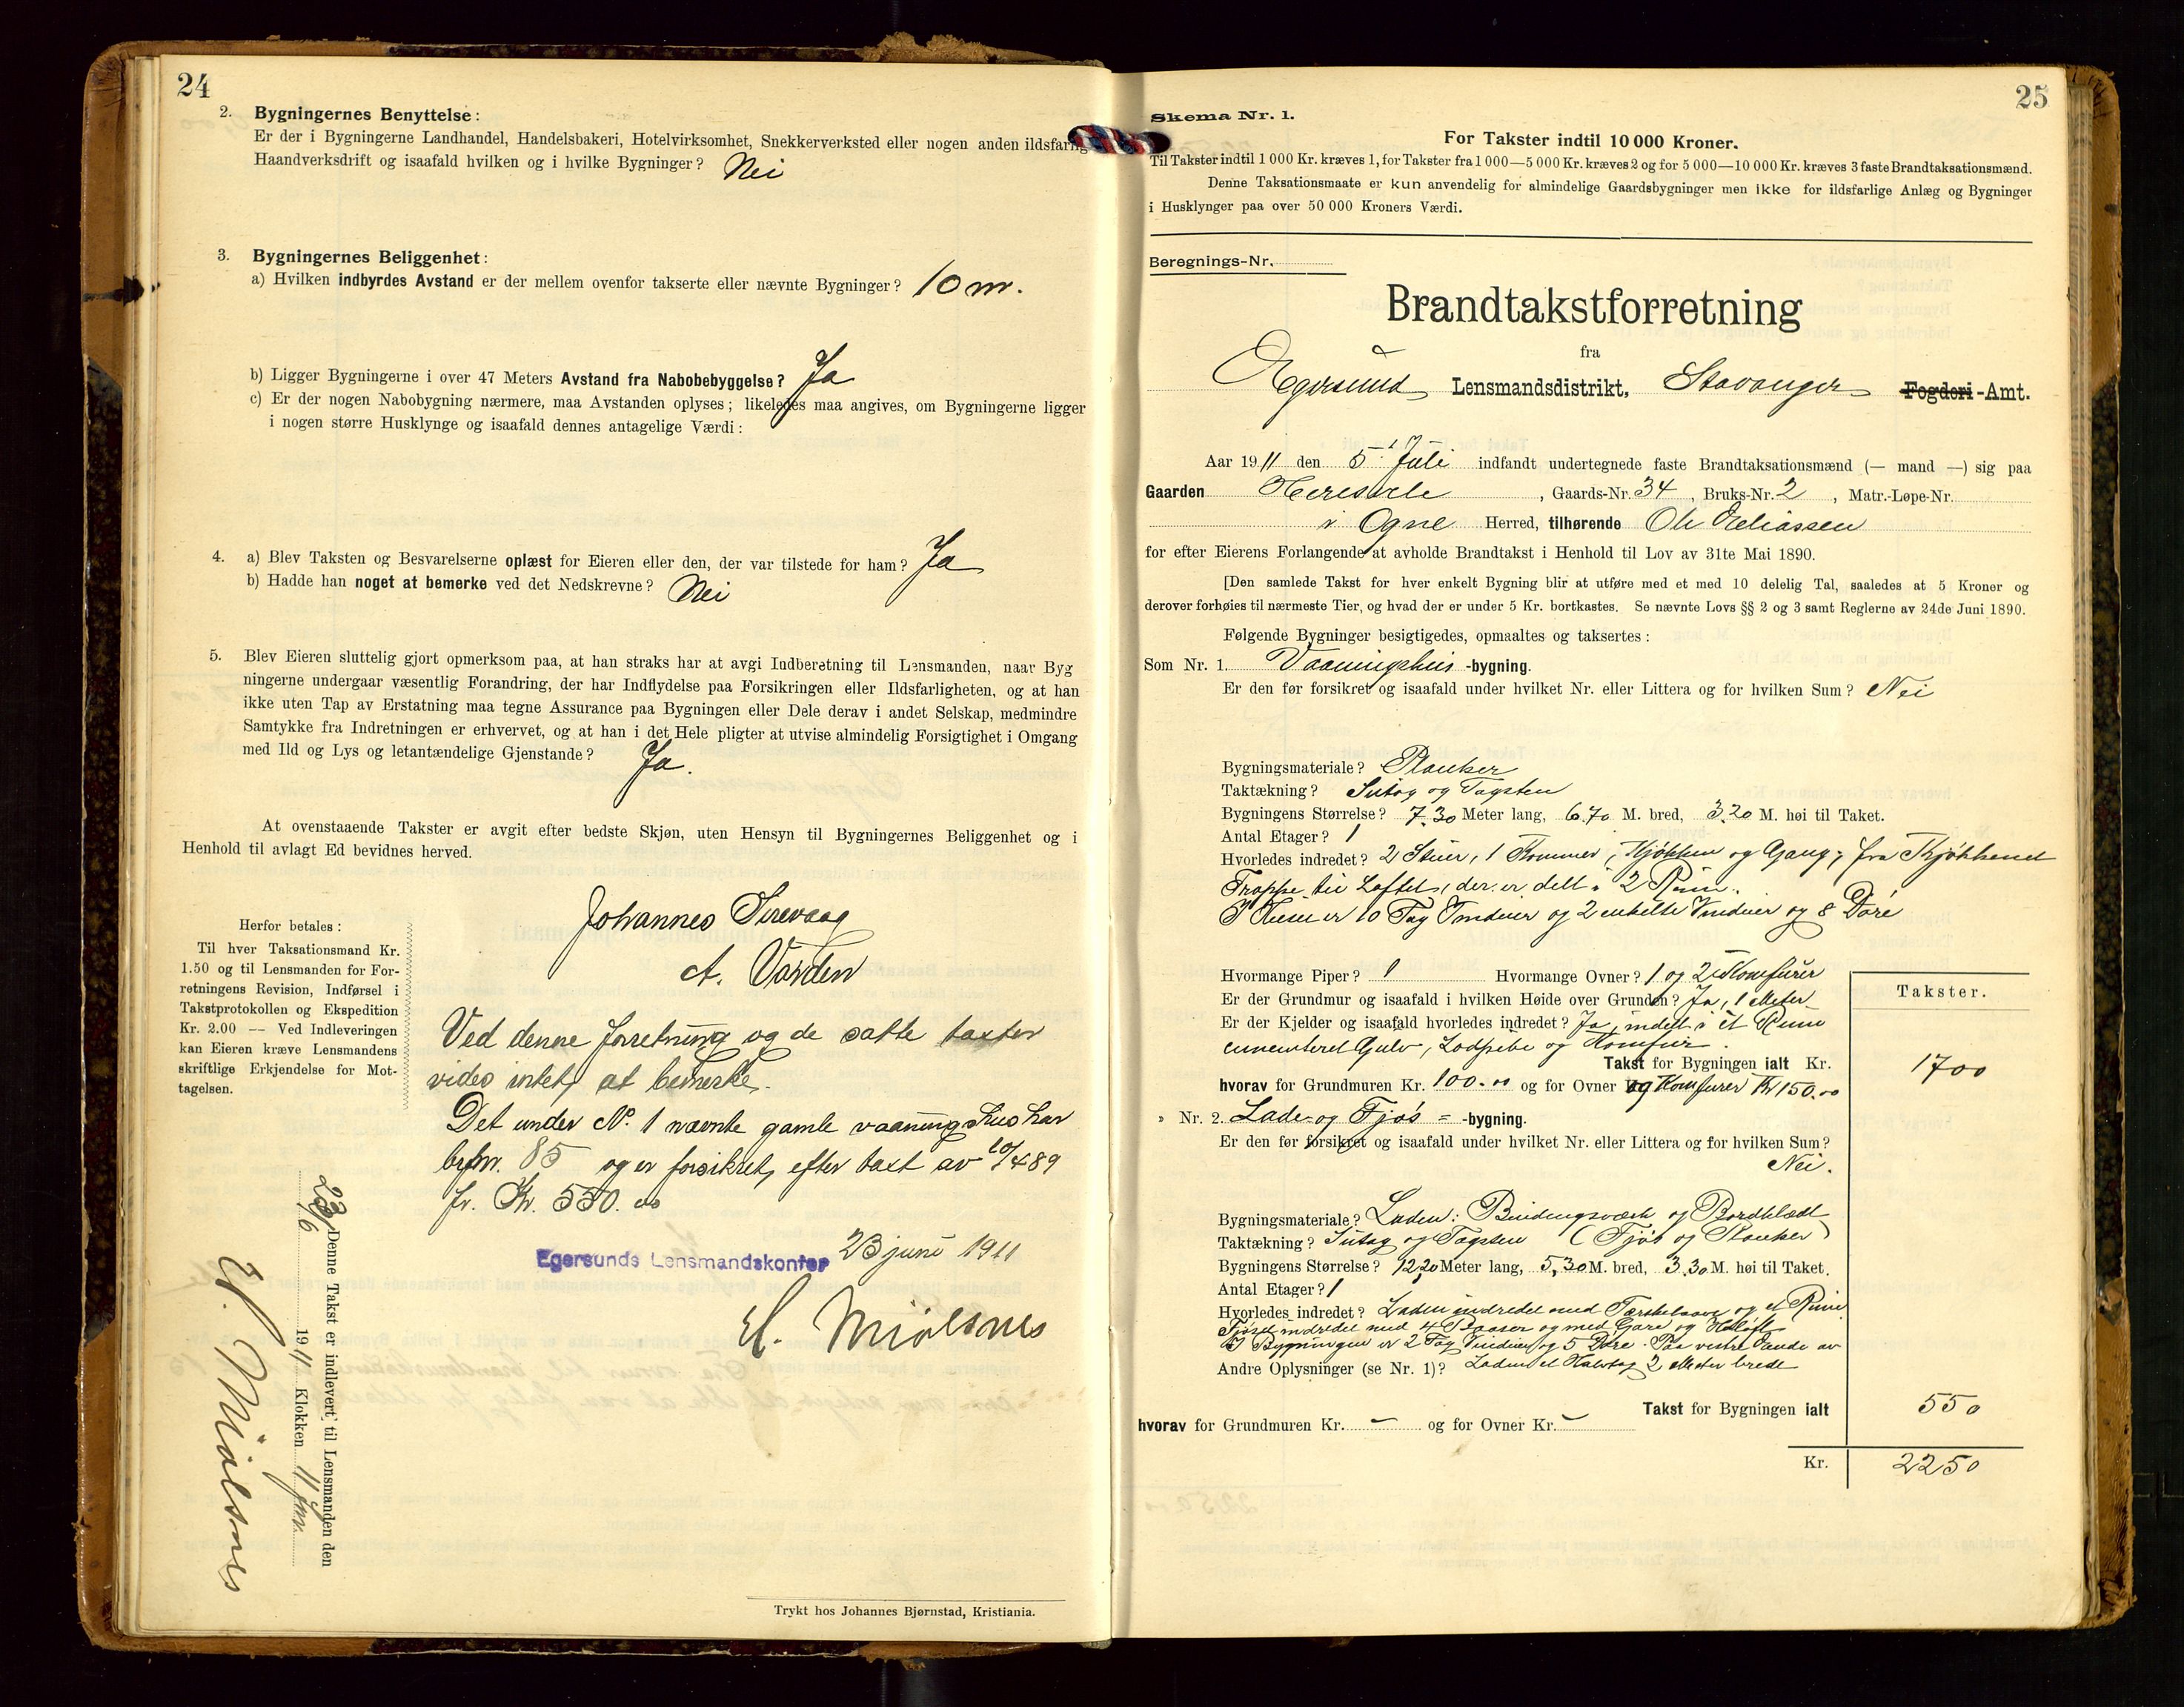 24
2. Bygningernes Benyttelse:
Er der i Bygningerne Landhandel, Handelsbakeri, Hotelvirksomhet, Snekkerverksted eller nogen anden ildsfarlig
Haandverksdrift og isaafald hvilken og i hvilke Bygninger? Nei
3. Bygningernes Beliggenhet:
a) Hvilken indbyrdes Avstand er der mellem ovenfor takserte eller nævnte Bygninger? 10 m.
b) Ligger Bygningerne i over 47 Meters Avstand fra Nabobebyggelse? Ja
c) Er der nogen Nabobygning nærmere, maa Avstanden oplyses; likeledes maa angives, om Bygningerne ligger
i nogen større Husklynge og isaafald dennes antagelige Værdi:
4. a) Blev Taksten og Besvarelserne oplæst for Eieren eller den, der var tilstede for ham? Ja
b) Hadde han noget at bemerke ved det Nedskrevne? Nei
5. Blev Eieren sluttelig gjort opmerksom paa, at han straks har at avgi Indberetning til Lensmanden, naar Byg
ningerne undergaar væsentlig Forandring, der har Indflydelse paa Forsikringen eller Ildsfarligheten, og at han
ikke uten Tap av Erstatning maa tegne Assurance paa Bygningen eller Dele derav i andet Selskap, medmindre
Samtykke fra Indretningen er erhvervet, og at han i det Hele pligter at utvise almindelig Forsigtighet i Omgang
med Ild og Lys og letantændelige Gjenstande? Ja.
At ovenstaaende Takster er avgit efter bedste Skjøn, uten Hensyn til Bygningernes Beliggenhet og i
Henhold til avlagt Ed bevidnes herved.
Johannes Sirevaag
A. Varden
Herfor betales:
Til hver Taksationsmand Kr.
1.50 og til Lensmanden for For-
retningens Revision, Indførsel i
Takstprotokollen og Ekspedition
Kr. 2.00 — Ved Indleveringen
kan Eieren kræve Lensmandens
skriftlige Erkjendelse for Mot-
tagelsen.
Ved denne forretning og de satte taxter
vides intet at bemerke.
Det under No. 1 nævnte gamle vaaningshus har
br.nr. 85 og er forsikret efter taxt av 10/7 489
fr. Kr. 550.00
Egersunds Lensmandskontor 23 juni 1911
H. Mjølsnes
Denne Takst er indlevert til Lensmanden den
23/6 1911 Klokken 11 fm.
H. Mjølsnes
Trykt hos Johannes Bjørnstad, Kristiania.
25
Skema Nr. 1.
For Takster indtil 10 000 Kroner.
Til Takster indtil 1 000 Kr. kræves 1, for Takster fra 1 000—5 000 Kr. kræves 2 og for 5 000—10 000 Kr. kræves 3 faste Brandtaksationsmænd.
Denne Taksationsmaate er kun anvendelig for almindelige Gaardsbygninger men ikke for ildsfarlige Anlæg og Bygninger
i Husklynger paa over 50 000 Kroners Værdi.
Beregnings-Nr.
Brandtakstforretning
fra
Egersund Lensmandsdistrikt, Stavanger Fogderi-Amt.
Aar 1911 den 5. Juli indfandt undertegnede faste Brandtaksationsmænd (— mand —) sig paa
Gaarden , Gaards-Nr. 34 , Bruks-Nr. 2 , Matr.-Løpe-Nr.
i Ogne Herred, tilhørende Ole Eeliassen
for efter Eierens Forlangende at avholde Brandtakst i Henhold til Lov av 31te Mai 1890.
[Den samlede Takst for hver enkelt Bygning blir at utføre med et med 10 delelig Tal, saaledes at 5 Kroner og
derover forhøies til nærmeste Tier, og hvad der er under 5 Kr. bortkastes. Se nævnte Lovs §§ 2 og 3 samt Reglerne av 24de Juni 1890.
Følgende Bygninger besigtigedes, opmaaltes og taksertes:
Som Nr. 1. Vaaningshus -bygning.
Er den før forsikret og isaafald under hvilket Nr. eller Littera og for hvilken Sum? Nei
Bygningsmateriale? Planker
Taktækning? Sutag og Tagsten
Bygningens Størrelse? 7.30 Meter lang, 6.70 M. bred, 3.20 M. høi til Taket.
Antal Etager? 1
Hvorledes indredet? 2 Stuer, 1 Kammer, Kjøkken og Gang; fra Kjøkkenet
Trappe til Loftet, der er delt i 2 Rum.
I Huset er 10 Fag Vinduer og 2 enkelte Vinduer og 8 Døre
Hvormange Piper? 1 Hvormange Ovner? 1 og 2 Komfurer
Er der Grundmur og isaafald i hvilken Høide over Grunden? Ja, 1 Meter
Er der Kjelder og isaafald hvorledes indredet? Ja, indelt i et Rum
cementeret Gulv, og Komfur.
Takst for Bygningen ialt Kr.
hvorav for Grundmuren Kr. 100.00 og for Ovner og Komfurer Kr 150.00
Takster.
1700
» Nr. 2. Lade og Fjøs -bygning.
Er den før forsikret og isaafald under hvilket Nr. eller Littera og for hvilken Sum?
Nei.
Bygningsmateriale? Laden: Bindingsværk og Bordklædt
Taktækning? Sutag og Tagsten (Fjøs og Planker)
Bygningens Størrelse? 12,20 Meter lang, 5,30 M. bred, 3.30 M. høi til Taket.
Antal Etager? 1
Hvorledes indredet? Laden indredet med Tærskelaave og et Rum
Fjøset indredet med 4 Baaser og med Gare og Høloft
I Bygningen er 2 Fag Vinduer og 5 Døre. Paa vestre Ende av
Andre Oplysninger (se Nr. 1)? Laden et Halvtag 2 Meter bredt
Takst for Bygningen ialt 550
hvorav for Grundmuren Kr. – og for Ovner Kr. –
Kr. 2250